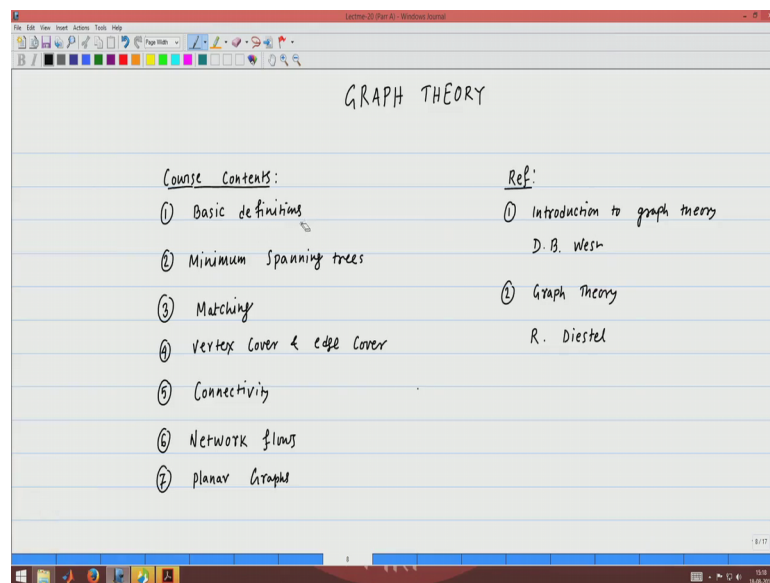 Lectme-20 (Parr A) - Windows Journal
File Edit View Insert Actions Tools Help
Page Width
B I
GRAPH THEORY
Course Contents:
① Basic definitions
② Minimum Spanning trees
③ Matching
④ Vertex Cover & edge Cover
⑤ Connectivity
⑥ Network flows
⑦ Planar Graphs
Ref:
① Introduction to graph theory
D. B. West
② Graph Theory
R. Diestel
8
8/17
15:18